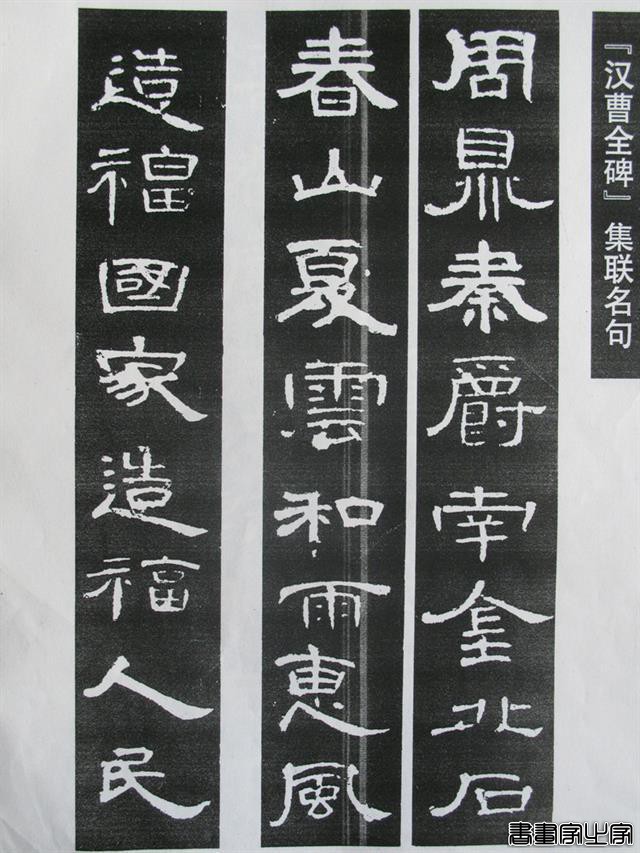 『汉曹全碑』集联名句
周鼎秦爵南金北石
春山夏雲和雨惠風
造福國家造福人民
書畫家之家